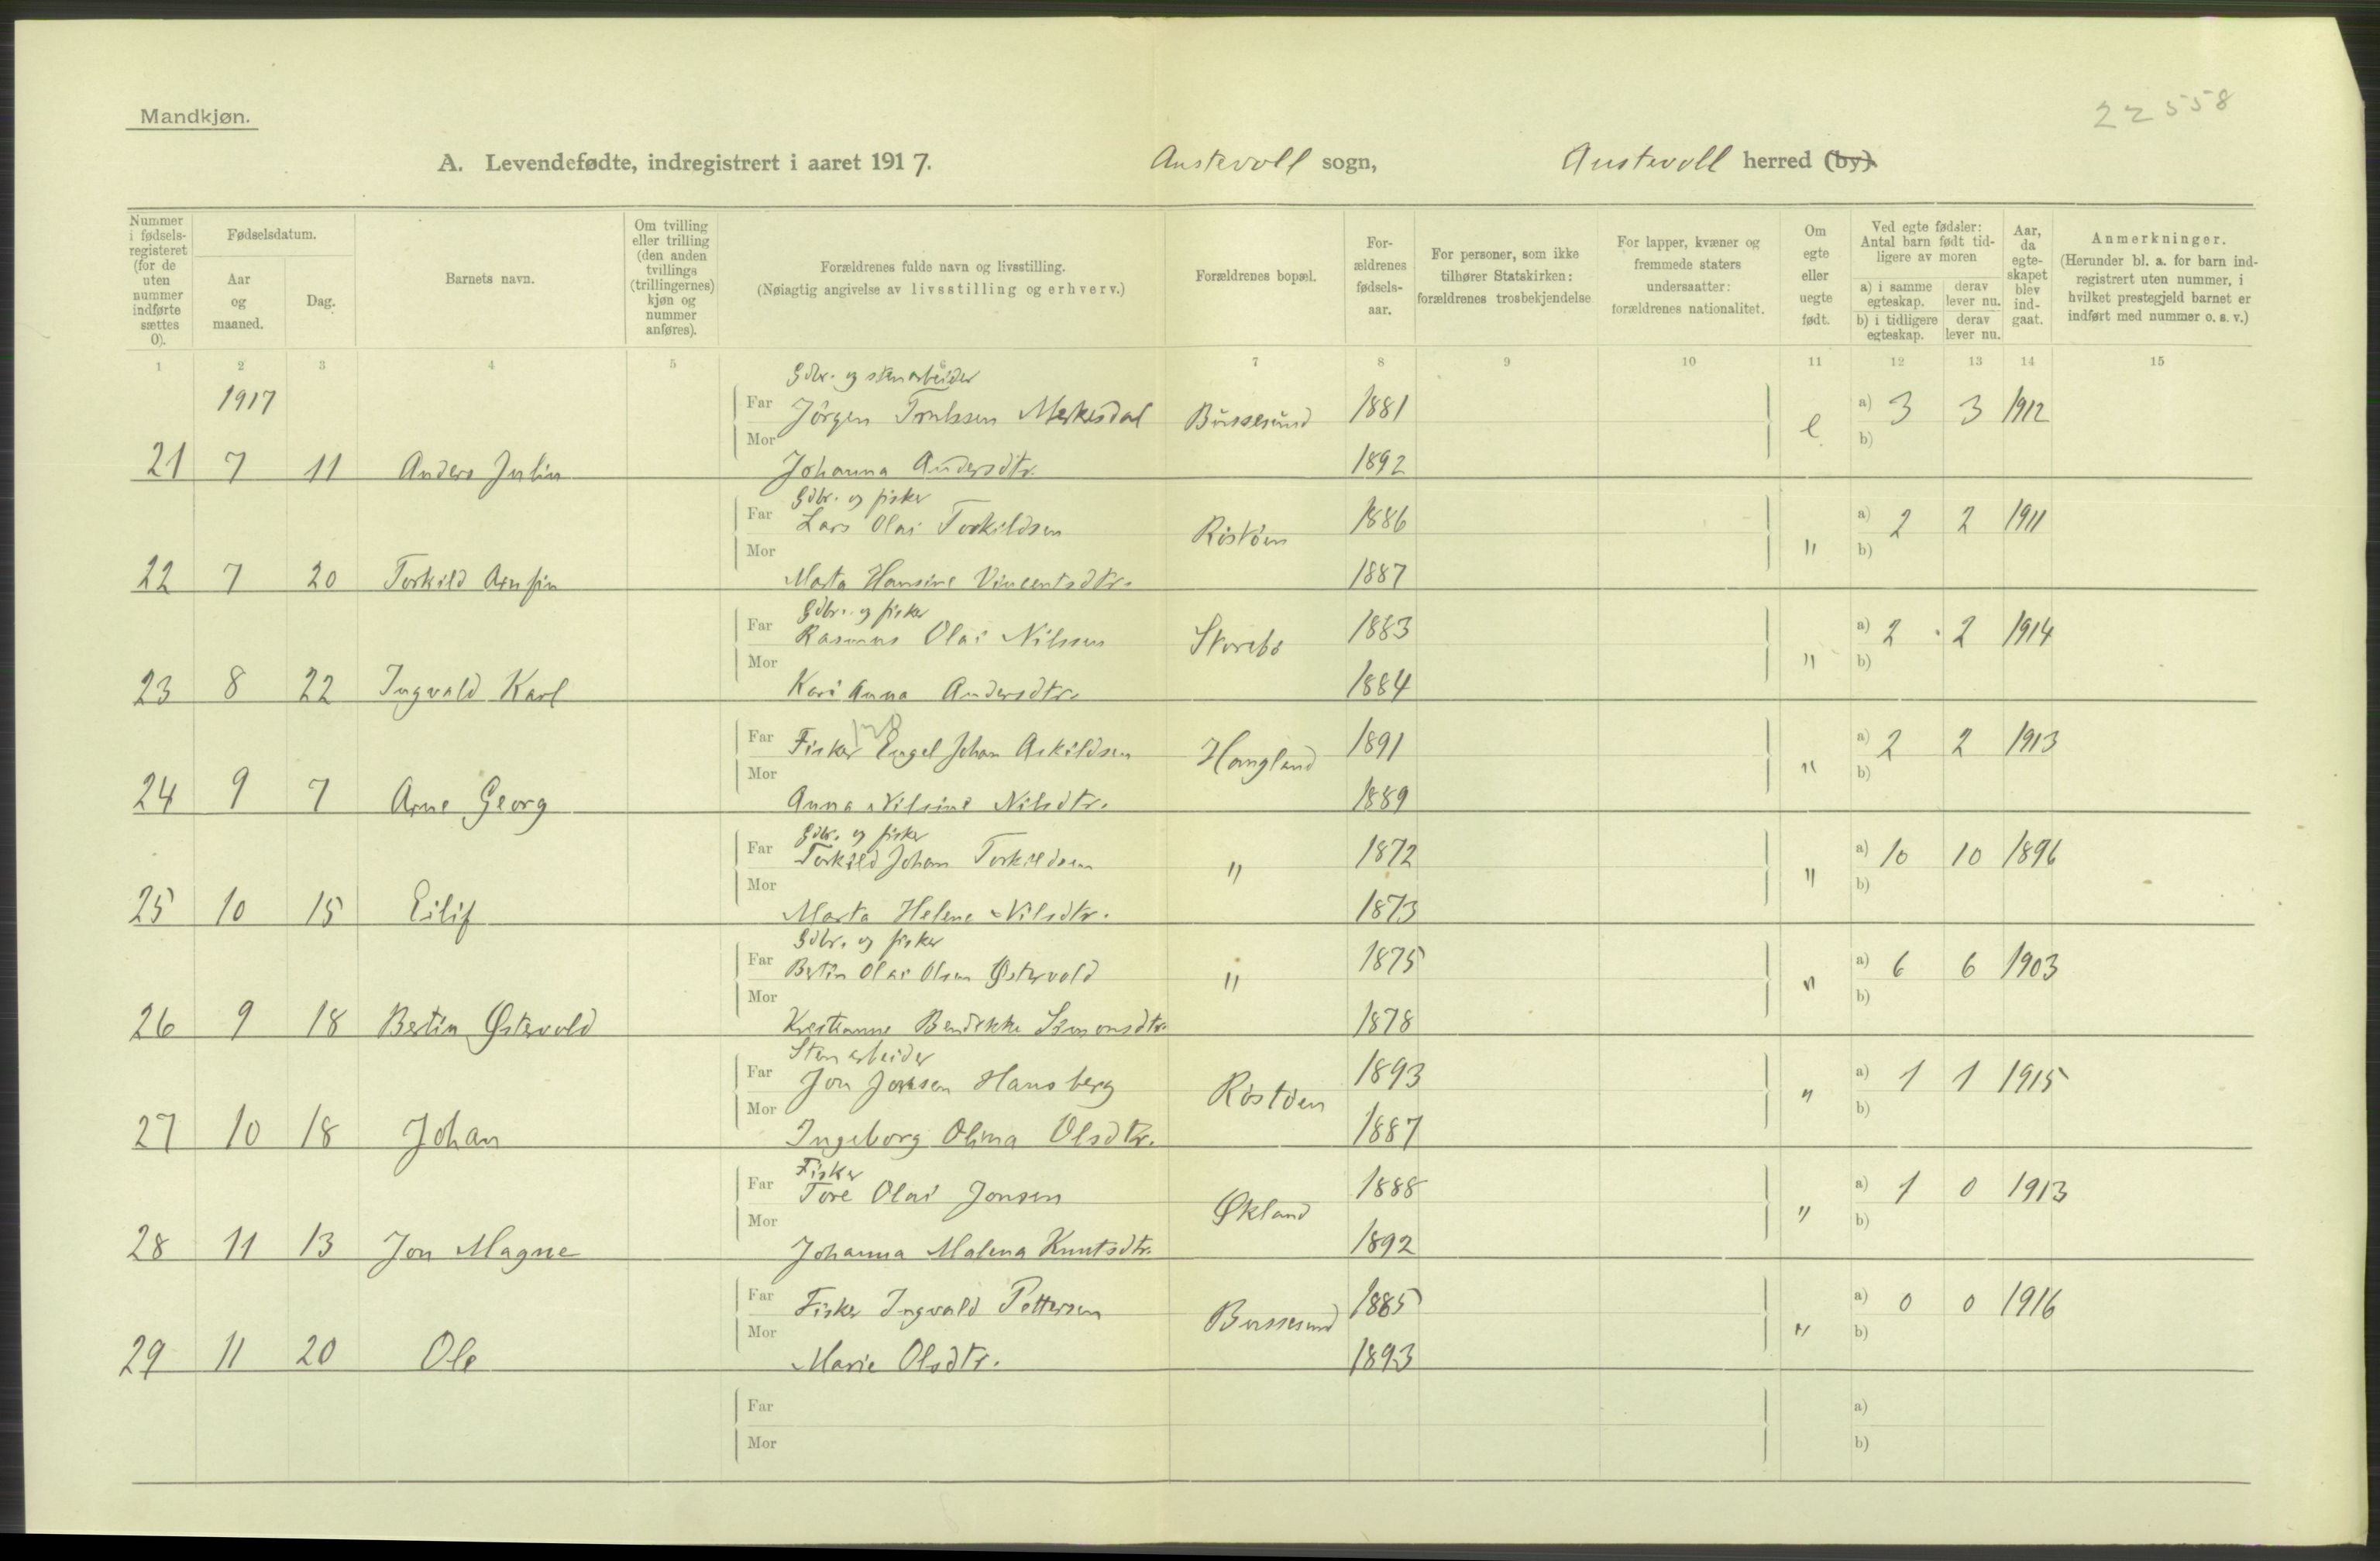 Mandkjøn.
22558
A. Levendefødte, indregistrert i aaret 1917. Austevoll sogn, Austevoll herred (by).
Nummer i fødselsregisteret (for de uten nummer indførte sættes 0).
Fødselsdatum.
Aar og maaned.
Dag.
Barnets navn.
Om tvilling eller trilling (den anden tvillings (trillingernes) kjøn og nummer anføres).
Forældrenes fulde navn og livsstilling.
(Nøiagtig angivelse av livsstilling og erhverv.)
Forældrenes bopæl.
Forældrenes fødselsaar.
For personer, som ikke tilhører Statskirken: forældrenes trosbekjendelse
For lapper, kvæner og fremmede staters undersaatter: forældrenes nationalitet.
Om egte eller uegte født.
Ved egte fødsler: Antal barn født tidligere av moren
a) i samme egteskap.
derav lever nu.
b) i tidligere egteskap.
derav lever nu.
Aar, da egteskapet blev indgaat.
Anmerkninger.
(Herunder bl. a. for barn indregistrert uten nummer, i hvilket prestegjeld barnet er indført med nummer o. s. v.)
1 2 3 4 5 6 7 8 9 10 11 12 13 14 15
1917
Gdbr. og stenarbeider
Far Jørgen Trulssen Merkesdal Bussesund 1881 e a) 3 3 1912
Mor b)
21 7 11 Anders Julin Johanna Andersdtr. 1892
Gdbr. og fisker
Far Lars Olai Torkildsen Röstöen 1886 " a) 2 2 1911
Mor b)
22 7 20 Torkild Arnfin Marta Hansine Vincentsdtr. 1887
Gdbr. og fisker
Far Rasmus Olai Nilssen Storebö 1883 " a) 2 2 1914
Mor b)
23 8 22 Ingvald Karl Kari Anna Andersdtr. 1884
Far Fisker Engel Johan Askildsen Haugland 1891 " a) 2 2 1913
Mor b)
24 9 7 Arne Georg Anna Nilsine Nilsdtr. 1889
Gdbr. og fisker
Far Torkild Johan Torkildsen " 1872 " a) 10 10 1896
Mor b)
25 10 15 Eilif Marta Helene Nilsdtr. 1873
Gdbr. og fisker
Far Bertin Olai Olsen Østervold " 1875 " a) 6 6 1903
Mor b)
26 9 18 Bertin Østervold Kristianne Bendikke Simonsdtr. 1878
Stenarbeider
Far Jon Jonsen Hansberg Röstöen 1893 " a) 1 1 1915
Mor b)
27 10 18 Johan Ingeborg Olina Olsdtr. 1887
Fisker
Far Tore Olai Jonsen Økland 1888 " a) 1 0 1913
Mor b)
28 11 13 Jon Magne Johanna Malena Knutsdtr. 1892
Far Fisker Ingvald Pettersen Bussesund 1885 " a) 0 0 1916
Mor b)
29 11 20 Ole Marie Olsdtr. 1893
Far a)
Mor b)